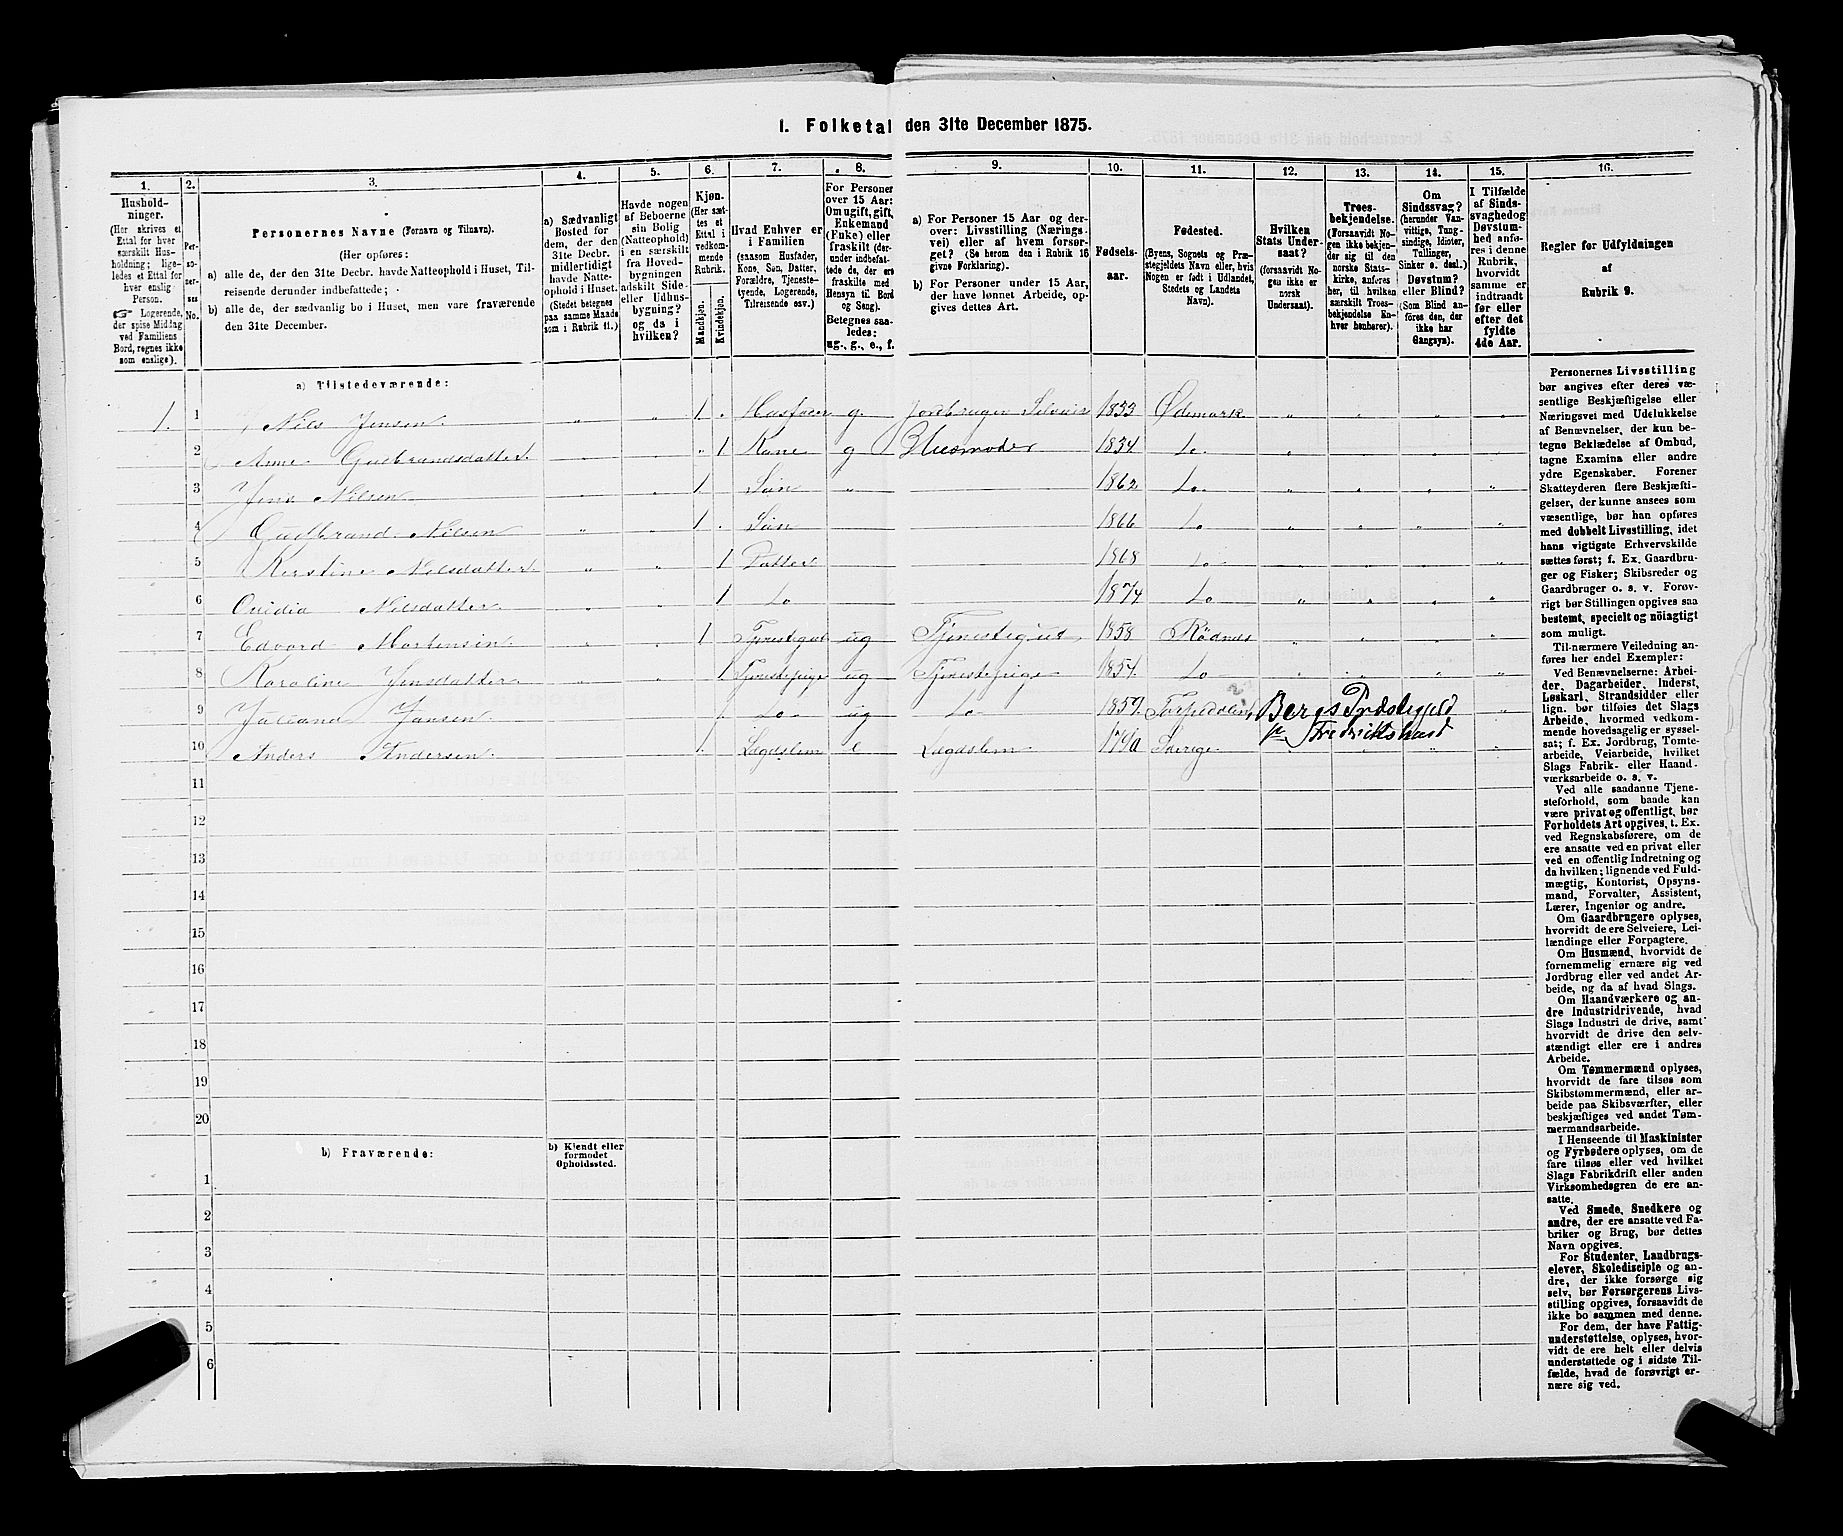 1. Folketal den 31te December 1875.
1. 2. 3. 4. 5. 6. 7. 8. 9. 10. 11. 12. 13. 14. 15. 16.
Hushold-
ninger.
(Her skrives et
Ettal for hver
særskilt Hus-
holdning; lige-
ledes et Ettal for
hver enslig
Person.
☞ Logerende,
der spise Middag
ved Familiens
Bord, regnes ikke
som enslige).
Per-
so-
ner-
nes
No.
Personernes Navne (Fornavn og Tilnavn).
(Her opføres:
a) alle de, der den 31te Decbr. havde Natteophold i Huset, Til-
reisende derunder indbefattede;
b) alle de, der sædvanlig bo i Huset, men vare fraværende
den 31te December.
a) Sædvanligt
Bosted for
dem, der den
31te Decbr.
midlertidigt
havde Natte-
ophold i Huset.
(Stedet betegnes
paa samme Maade
som i Rubrik 11.)
Havde nogen
af Beboerne
sin Bolig
(Natteophold)
i en særskilt
fra Hoved-
bygningen
adskilt Side-
eller Udhus-
bygning?
og da i
hvilken?
Kjøn.
(Her sæt-
tes et
Ettal i
vedkom-
mende
Rubrik.
Mandkjøn.
Kvindekjøn.
Hvad Enhver er
i Familien
(saasom Husfader,
Kone, Søn, Datter,
Forældre, Tjeneste-
tyende, Logerende,
Tilreisende osv.)
For Personer
over 15 Aar:
Om ugift, gift,
Enkemand
(Enke) eller
fraskilt (der-
under indbefat-
tede de, der ere
fraskilte med
Hensyn til Bord
og Seng).
Betegnes saa-
ledes:
ug., g., e., f.
a) For Personer 15 Aar og der-
over: Livsstilling (Nærings-
vei) eller af hvem forsør-
get? (Se herom den i Rubrik 16
givne Forklaring).
b) For Personer under 15 Aar,
der have lønnet Arbeide, op-
gives dettes Art.
Fødsels-
aar.
Fødested.
(Byens, Sognets og Præ-
stegjeldets Navn eller, hvis
Nogen er født i Udlandet,
Stedets og Landets
Navn).
Hvilken
Stats Under-
saat?
(forsaavidt No-
gen ikke er
norsk
Undersaat).
Troes-
bekjendelse.
(Forsaavidt No-
gen ikke bekjen-
der sig til den
norske Stats-
kirke, anføres
her, til hvilken
særskilt Troes-
bekjendelse En-
hver henhører).
Om
Sindssvag?
(herunder Van-
vittige, Tung-
sindige, Idioter,
Tullinger,
Sinker o. desl.)
Døvstum?
eller Blind?
(Som Blind an-
føres den, der
ikke har
Gangsyn).
I Tilfælde
af Sinds-
svaghed og
Døvstum-
hed anfø-
res i denne
Rubrik,
hvorvidt
samme er
indtraadt
før eller
efter det
fyldte
4de Aar.
Regler for Udfyldningen
af
Rubrik 9.
a) Tilstedeværende:
1. 1 Nils Jensen " " 1. Husfader g. Jordbruger Selveier 1833 Ødemark " "
2 Anne Gudbrandsdatter " 1 Kone g Husmoder 1834 Do. "
3 Jens Nilsen 1. Søn " 1862 Do. " "
4 Gudbrand Nilsen " " 1 Søn 1866 Do " "
5 Kirstine Nilsdatter " " 1 Datter 1868 Do "
6 Ovidia Nilsdatter " " 1 Do 1874 Do " "
7 Edvard Mortensen " 1 Tjenestegut ug Tjenestegut 1858 Rødnes " "
8 Karoline Jensdatter " 1 Tjenestepige ug Tjenestepige 1854 Do " "
9 Juliana Jansen 1 Do ug Do 1857 Bergs Præstegjeld "
pr Fredrikshald
10 Anders Andersen 1. Lægdslem e Lægdslem 1790 Sverige " "
11
12
13
14
15
16
17
18
19
20
b) Fraværende:
b) Kjendt eller
formodet
Opholdssted.
1
2
3
4
5
6
Personernes Livsstilling
bør angives efter deres væ-
sentlige Beskjæftigelse eller
Næringsvei med Udelukkelse
af Benævnelser, der kun be-
tegne Beklædelse af Ombud,
tagne Examina eller andre
ydre Egenskaber. Forener
Skatteyderen flere Beskjæfti-
gelser, der kunne ansees som
væsentlige, bør han opføres
med dobbelt Livsstilling, idet
hans vigtigste Erhvervskilde
sættes først; f. Ex. Gaardbru-
ger og Fisker; Skibsreder og
Gaardbruger o. s. v. Forøv-
rigt bør Stillingen opgives saa
bestemt, specielt og nöiagtigt
som muligt.
Til nærmere Veiledning an-
føres her endel Exempler:
Ved Benævnelserne: Arbei-
der, Dagarbeider, Inderst,
Løskarl, Strandsidder eller
lign. bør tilføies det Slags
Arbeide, hvormed vedkom-
mende hovedsagelig er syssel-
sat; f. Ex. Jordbrug, Tomte-
arbeide, Veiarbeide, hvilket
Slags Fabrik- eller Haand-
værksarbeide o. s. v.
Ved alle saadanne Tjene-
steforhold, som baade kan
være privat og offentligt, bør
Forholdets Art opgives, t. Ex.
ved Regnskabsførere, om de
ere ansatte ved en privat eller
ved en offentlig Indretning og
da hvilken; lignende ved Fuld-
mægtig, Kontorist, Opsyns-
mand, Forvalter, Assistent,
Lærer, Ingeniør og andre.
Om Gaardbrugere oplyses,
hvorvidt de ere Selveiere, Lei-
lændinge eller Forpagtere.
Om Husmænd, hvorvidt de
fornemmelig ernære sig ved
Jordbrug eller ved andet Ar-
beide, og da af hvad Slags.
Om Haandværkere og an-
dre Industridrivende, hvad
Slags Industri de drive, samt
hvorvidt de drive den selv-
stændigt eller ere i andres
Arbeide.
Om Tømmermænd oplyses,
hvorvidt de fare tilsøs som
Skibstømmermænd, eller ar-
beide paa Skibsværfter, eller
beskjæftiges ved andet Tøm-
mermandsarbeide.
I Henseende til Maskinister
og Fyrbødere oplyses, om de
fare tilsøs eller ved hvilket
Slags Fabrikdrift eller anden
Virksomhedsgren de ere an-
satte.
Ved Smede, Snedkere og
andre, der ere ansatte ved Fa-
briker og Brug, bør dettes
Navn opgives.
For Studenter, Landbrugs-
elever, Skoledisciple og an-
dre, der ikke forsørge sig
selv, bør Forsørgerens Livs-
stilling opgives, forsaavidt de
ikke bo sammen med denne.
For dem, der have Fattig-
understøttelse, oplyses, hvor-
vidt de ere helt eller delvis
understøttede og i sidste Til-
fælde, hvad de forøvrigt er-
nære sig ved.